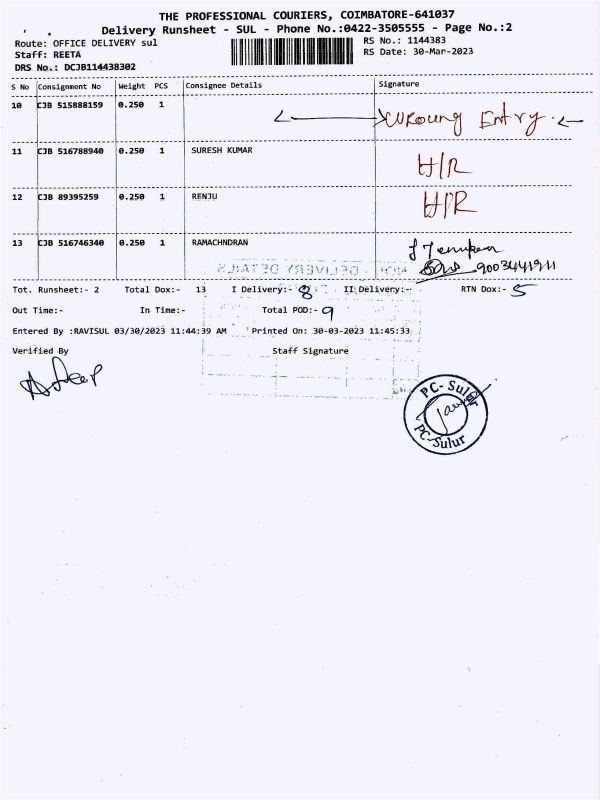 THE PROFESSIONAL COURIERS, COIMBATORE-641037
Delivery Runsheet - SUL - Phone No.:0422-3505555 - Page No.:2
Route: OFFICE DELIVERY sul
RS No.: 1144383
Staff: REETA
RS Date: 30-Mar-2023
DRS No.: DCJB114438302
S No Consignment No Weight PCS Consignee Details Signature
10 CJB 515888159 0.250 1 Wroung Entry.
11 CJB 516788940 0.250 1 SURESH KUMAR H/R
12 CJB 89395259 0.250 1 RENJU H/R
13 CJB 516746340 0.250 1 RAMACHNDRAN
9003441911
NON DELIVERY DETAILS
Tot. Runsheet:- 2 Total Dox:- 13 I Delivery:- 8 II Delivery:- RTN Dox:- 5
Out Time:- In Time:- Total POD:- 9
Entered By :RAVISUL 03/30/2023 11:44:39 AM Printed On: 30-03-2023 11:45:33
Verified By Staff Signature
PC-Sulur
PC-Sulur